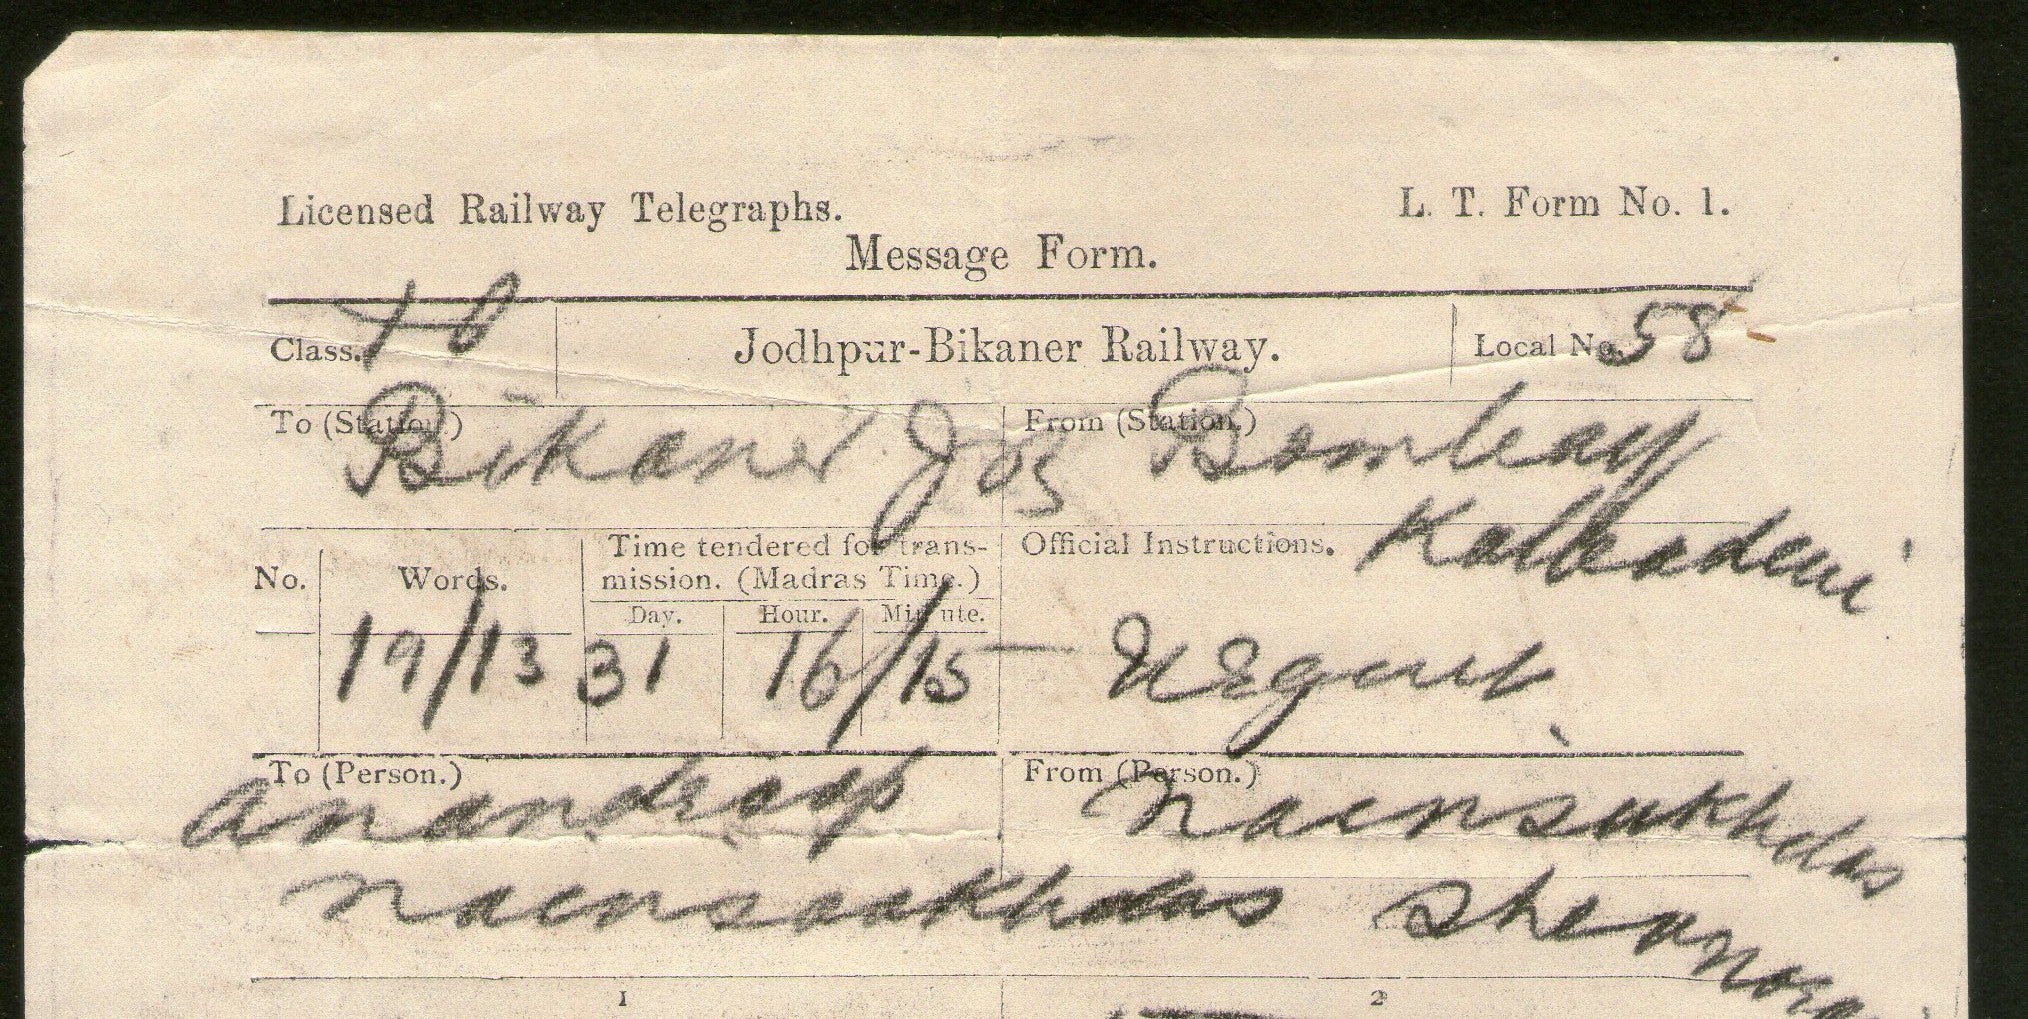 Licensed Railway Telegraphs. L. T. Form No. 1.
Message Form.
Class. Jodhpur-Bikaner Railway. Local No. 58
To (Station.) Bikaner From (Station.) Bombay
Kalbadevi
No. Words. Time tendered for trans-mission. (Madras Time.) Official Instructions.
Day. Hour. Minute.
19/13 31 16/15 Urgent
To (Person.) Anandroop From (Person.) Naensukhdas
Naensookhdas
1 2